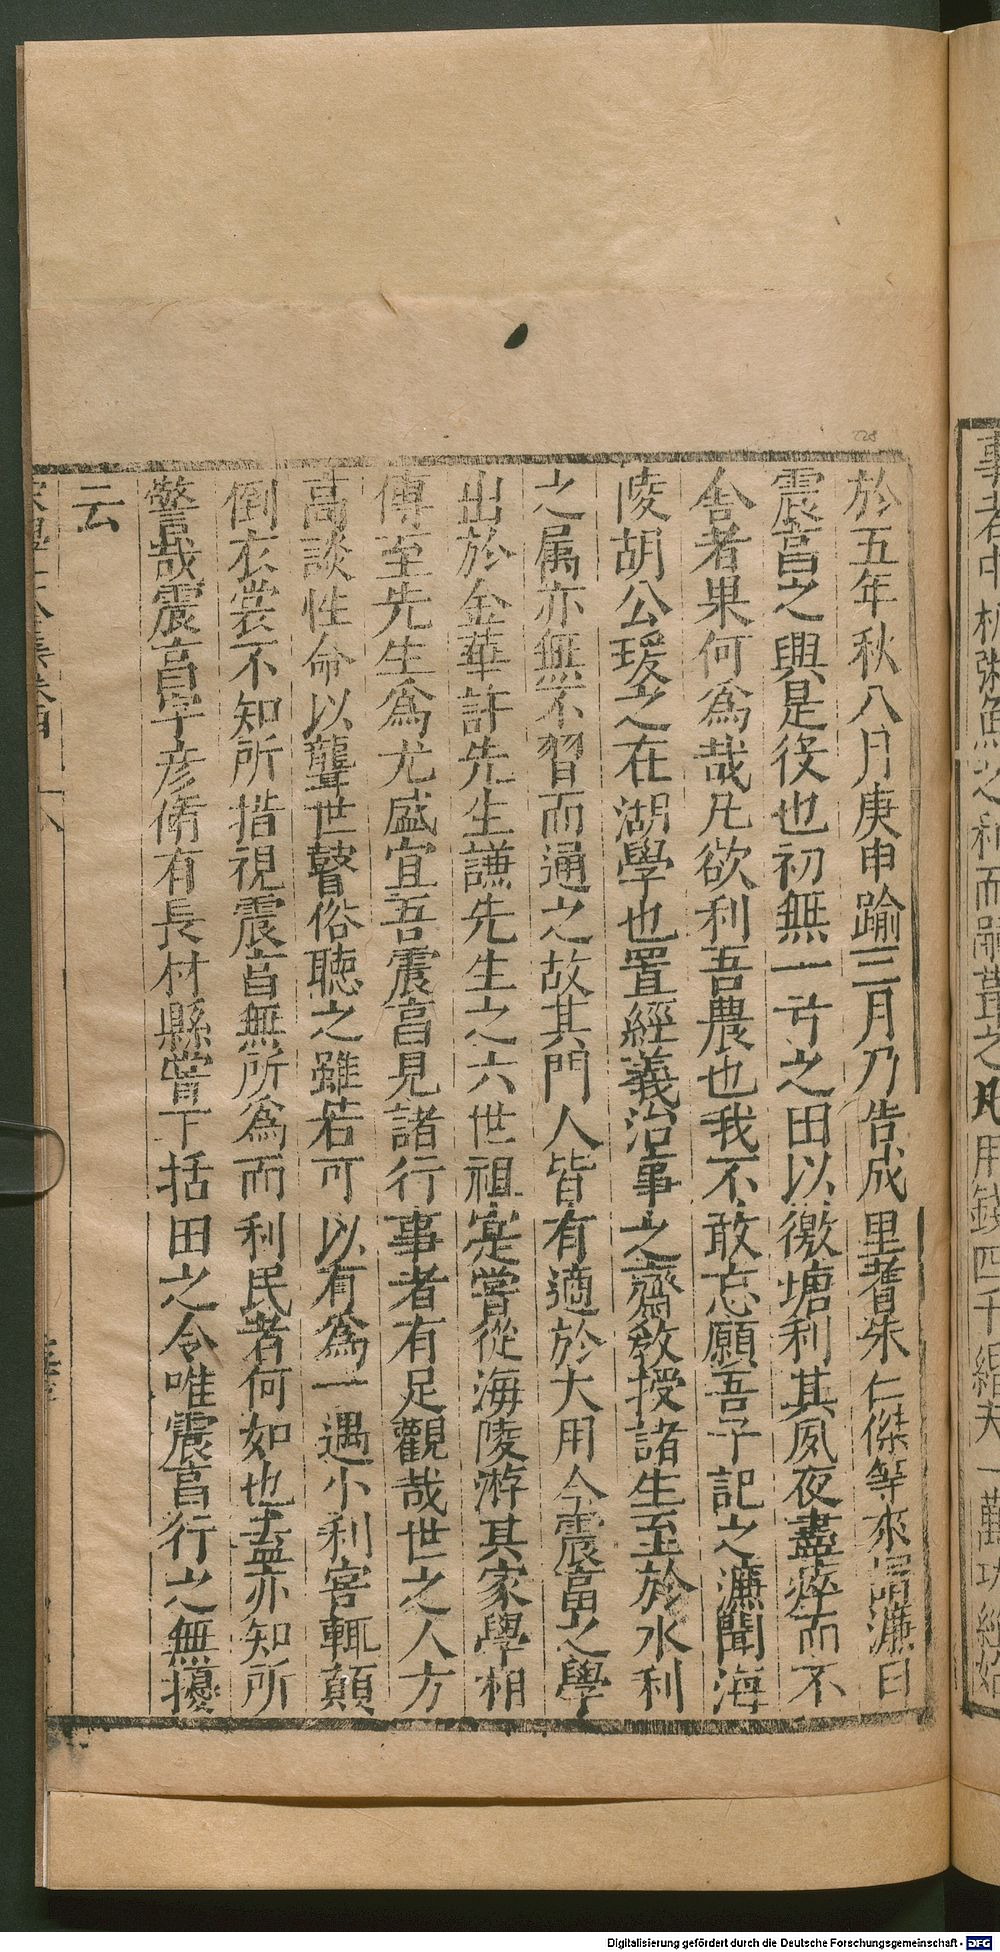 於五年秋八月庚申踰三月乃告成里耆朱仁傑等來謁濂曰
震亯之興是役也初無一亏之田以徼塘利其夙夜盡瘁而不
舍者果何爲哉凡欲利吾農也我不敢忘願吾子記之濂聞海
陵胡公瑗之在湖學也置經義治事之齋敎授諸生至於水利
之属亦無不習而通之故其門人皆有適於大用今震亯之學
出於金華許先生謙先生之六世祖寔嘗從海陵游其家學相
傳至先生爲尤盛宜吾震亯見諸行事者有足觀哉世之人方
髙談性命以聾世瞽俗聴之雖若可以有爲一遇小利害輒顛
倒衣裳不知所措視震亯無所爲而利民者何如也盍亦知所
警哉震亯字彦脩有長材縣嘗下括田之令唯震亯行之無擾
云
用錢四千緡夫一萬功經始
Digitalisierung gefördert durch die Deutsche Forschungsgemeinschaft - DFG